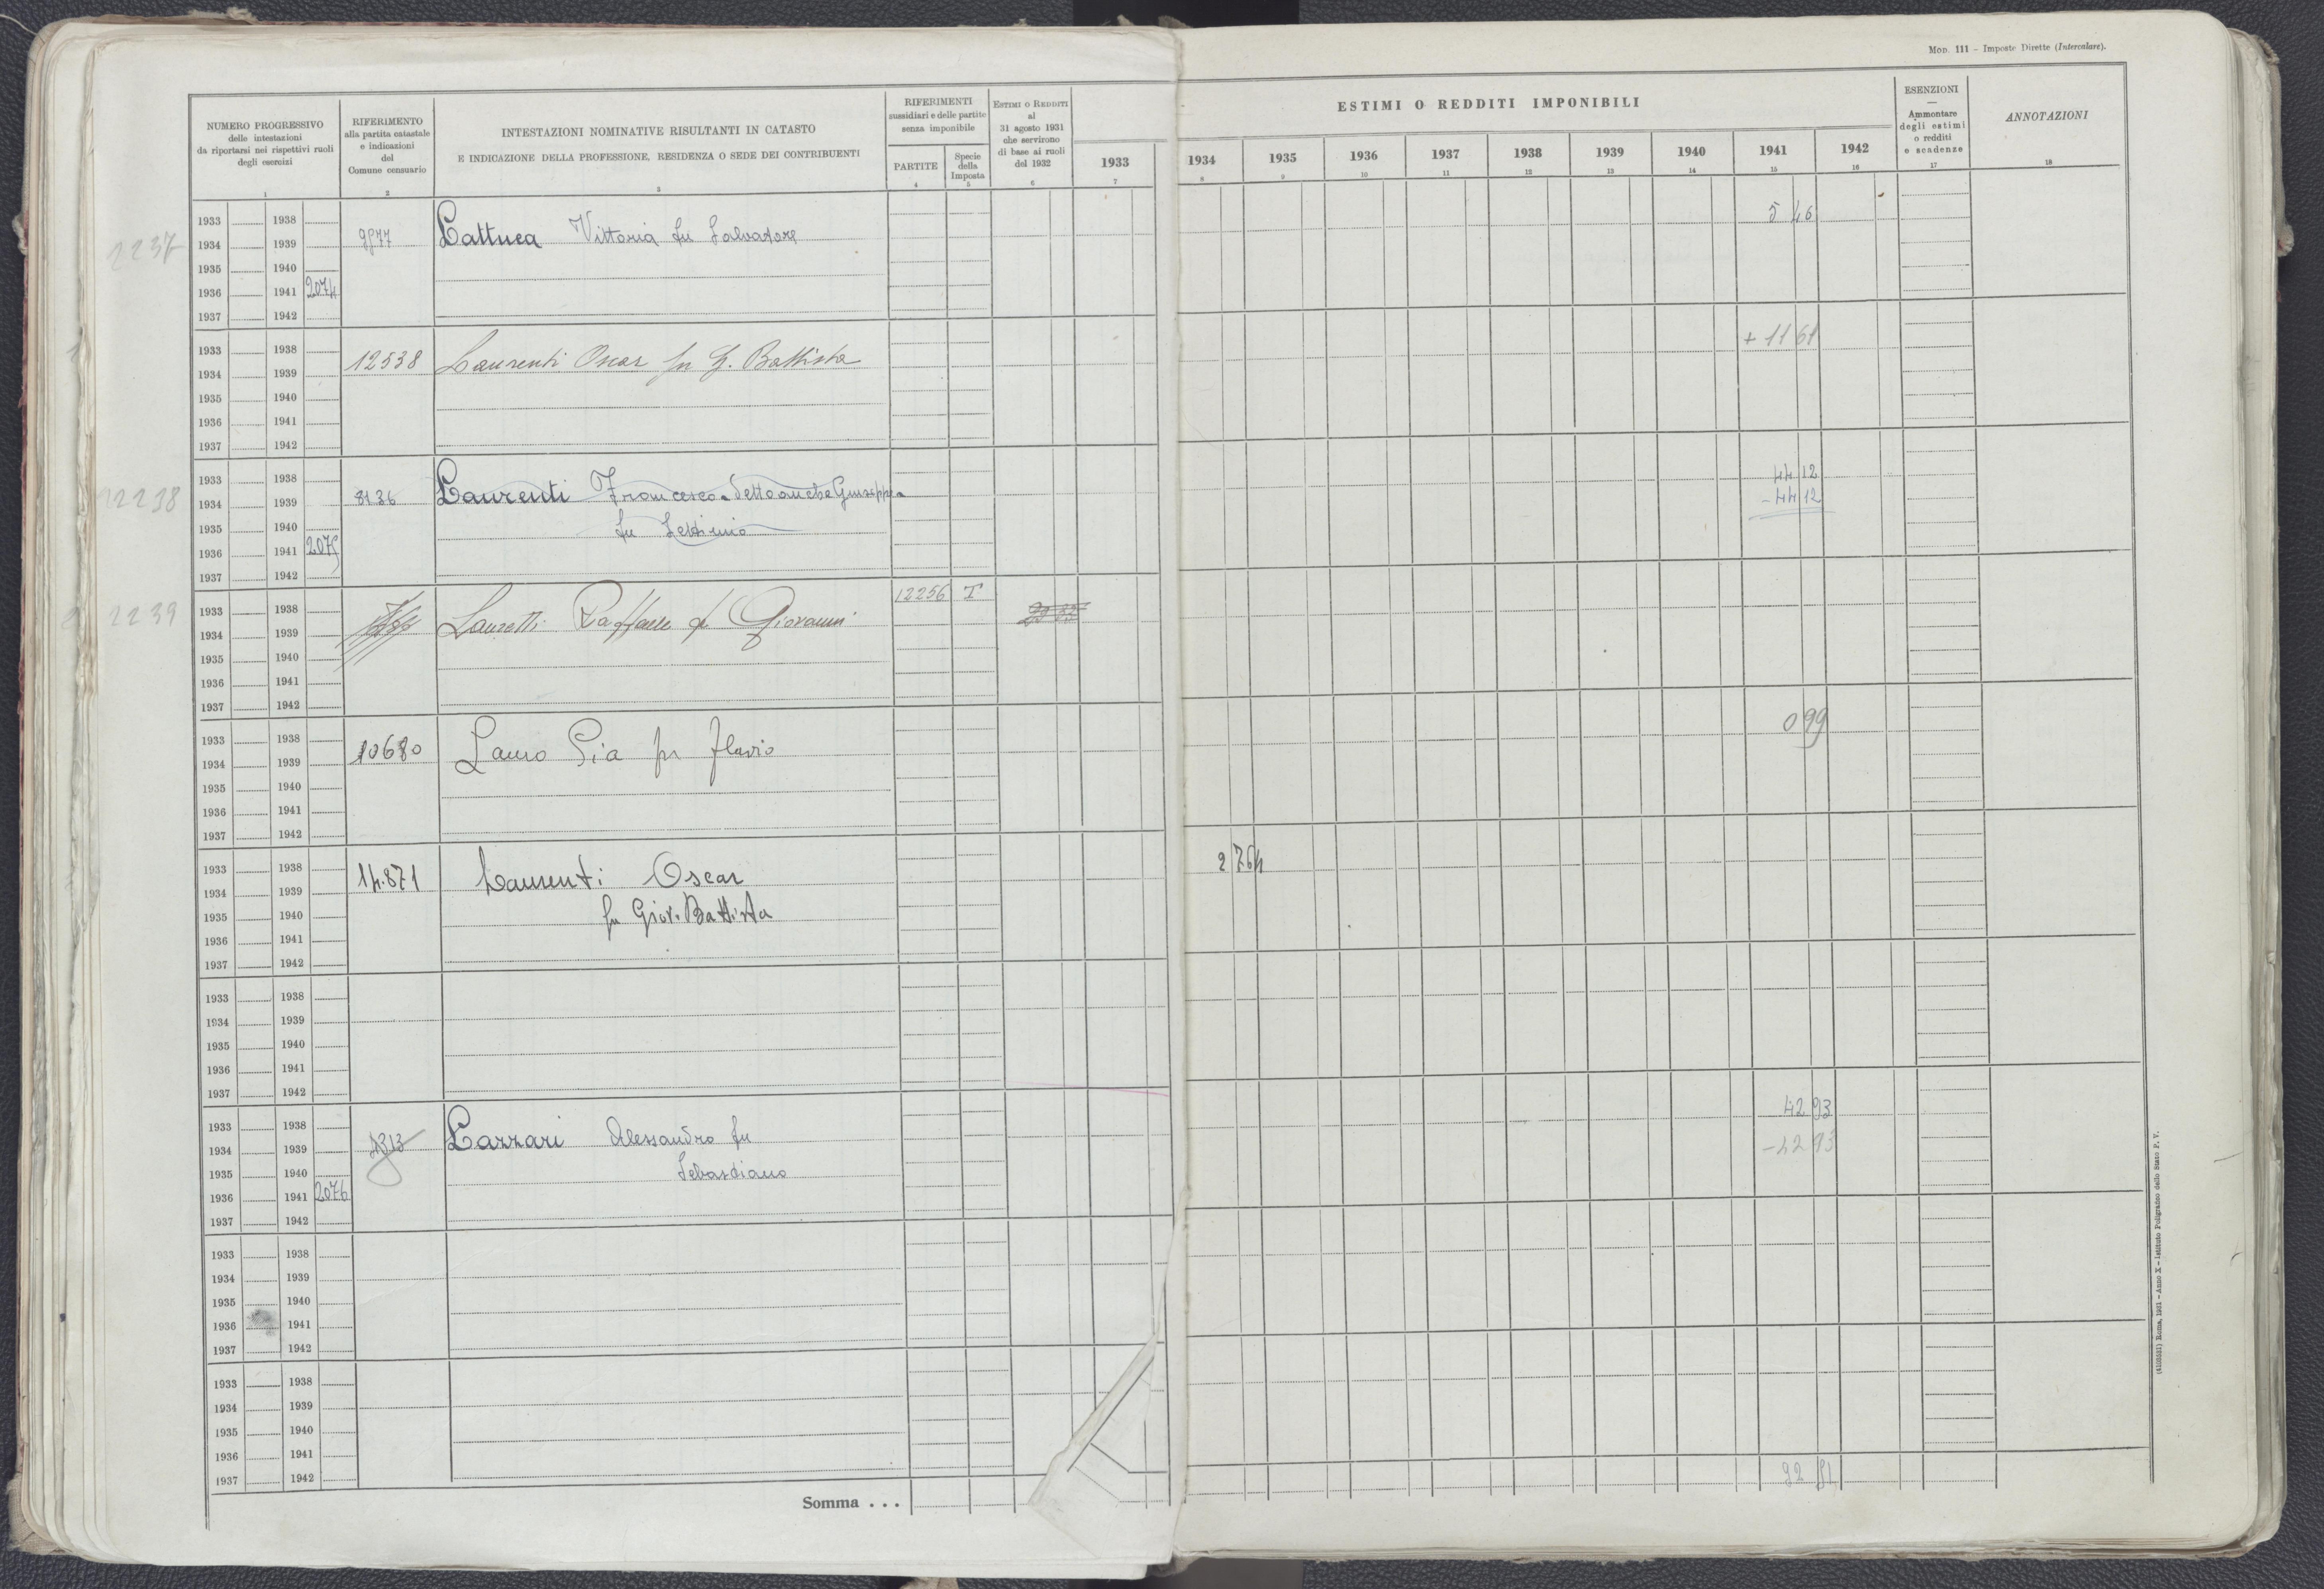 Mod. 111 - Imposte Dirette (Intercalare).
NUMERO PROGRESSIVO
delle intestazioni
da riportarsi nei rispettivi ruoli
degli esercizi
1
RIFERIMENTO
alla partita catastale
e indicazioni
del
Comune censuario
2
INTESTAZIONI NOMINATIVE RISULTANTI IN CATASTO
E INDICAZIONE DELLA PROFESSIONE, RESIDENZA O SEDE DEI CONTRIBUENTI
3
RIFERIMENTI
sussidiari e delle partite
senza imponibile
PARTITE
4
Specie
della
Imposta
5
Estimi o Redditi
al
31 agosto 1931
che servirono
di base ai ruoli
del 1932
6
ESTIMI O REDDITI IMPONIBILI
1933 1934 1935 1936 1937 1938 1939 1940 1941 1942
7 8 9 10 11 12 13 14 15 16
ESENZIONI
—
Ammontare
degli estimi
o redditi
e scadenze
17
ANNOTAZIONI
18
2237
1933 1938 5 46
1934 1939 9877 Lattuca Vittoria fu Salvadore
1935 1940
1936 1941 2074
1937 1942
1933 1938 + 11 61
1934 1939 12538 Laurenti Oscar fu G. Battista
1935 1940
1936 1941
1937 1942
2238
1933 1938 44 12
1934 1939 8136 Laurenti Francesco detto anche Giuseppe - 44 12
1935 1940 fu Settimio
1936 1941 2075
1937 1942
2239
1933 1938 12256 T
1934 1939 Lauretti Raffaele di Giovanni
1935 1940
1936 1941
1937 1942
1933 1938 0 99
1934 1939 10680 Lauro Pia fu Flavio
1935 1940
1936 1941
1937 1942
1933 1938 2 764
1934 1939 14.871 Laurenti Oscar
1935 1940 fu Giov. Battista
1936 1941
1937 1942
1933 1938
1934 1939
1935 1940
1936 1941
1937 1942
1933 1938 42 93
1934 1939 Lazzari Alessandro fu - 42 93
1935 1940 Sebastiano
1936 1941 2076
1937 1942
1933 1938
1934 1939
1935 1940
1936 1941
1937 1942
1933 1938
1934 1939
1935 1940
1936 1941
1937 1942
Somma . . . 92 81
(4105531) Roma, 1931 - Anno X - Istituto Poligrafico dello Stato P. V.